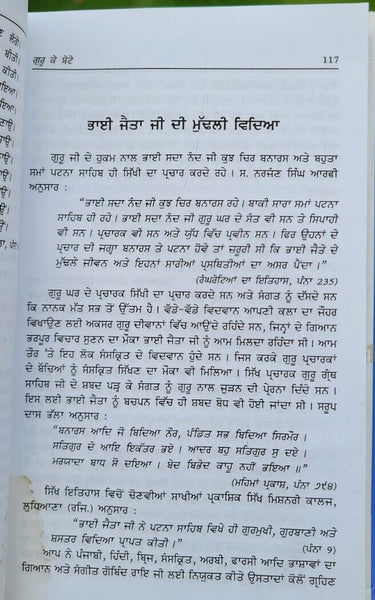 ਗੁਰੂ ਕੇ ਬੇਟੇ 117
ਭਾਈ ਜੈਤਾ ਜੀ ਦੀ ਮੁੱਢਲੀ ਵਿਦਿਆ
ਗੁਰੂ ਜੀ ਦੇ ਹੁਕਮ ਨਾਲ ਭਾਈ ਸਦਾ ਨੰਦ ਜੀ ਕੁਝ ਚਿਰ ਬਨਾਰਸ ਅਤੇ ਬਹੁਤਾ
ਸਮਾਂ ਪਟਨਾ ਸਾਹਿਬ ਹੀ ਸਿੱਖੀ ਦਾ ਪ੍ਰਚਾਰ ਕਰਦੇ ਰਹੇ। ਸ. ਨਰਜੰਣ ਸਿੰਘ ਆਰਵੀ
ਅਨੁਸਾਰ :
“ਭਾਈ ਸਦਾ ਨੰਦ ਜੀ ਕੁਝ ਚਿਰ ਬਨਾਰਸ ਰਹੇ। ਬਾਕੀ ਸਾਰਾ ਸਮਾਂ ਪਟਨਾ
ਸਾਹਿਬ ਹੀ ਰਹੇ। ਭਾਈ ਸਦਾ ਨੰਦ ਜੀ ਗੁਰੂ ਘਰ ਦੇ ਸੰਤ ਵੀ ਸਨ ਤੇ ਸਿਪਾਹੀ
ਵੀ ਸਨ। ਪ੍ਰਚਾਰਕ ਵੀ ਸਨ ਅਤੇ ਯੁੱਧ ਵਿੱਚ ਪ੍ਰਵੀਨ ਸਨ। ਫਿਰ ਉਹਨਾਂ ਦੇ
ਪ੍ਰਚਾਰ ਦੀ ਜਗ੍ਹਾ ਬਨਾਰਸ ਤੇ ਪਟਨਾ ਹੋਵੇ ਤਾਂ ਜ਼ਰੂਰੀ ਸੀ ਕਿ ਭਾਈ ਜੈਤੇ ਦੇ
ਮੁੱਢਲੇ ਜੀਵਨ ਅਤੇ ਇਹਨਾਂ ਸਾਰੀਆਂ ਪ੍ਰਸਥਿਤੀਆਂ ਦਾ ਅਸਰ ਪੈਂਦਾ।”
(ਰੰਘਰੇਟਿਆਂ ਦਾ ਇਤਿਹਾਸ, ਪੰਨਾ 235)
ਗੁਰੂ ਘਰ ਦੇ ਪ੍ਰਚਾਰਕ ਸਿੱਖੀ ਦਾ ਪ੍ਰਚਾਰ ਕਰਦੇ ਸਨ ਅਤੇ ਸੰਗਤ ਨੂੰ ਦੱਸਦੇ ਸਨ
ਕਿ ਨਾਨਕ ਮੱਤ ਸਭ ਤੋਂ ਉੱਤਮ ਹੈ। ਵੱਡੇ-ਵੱਡੇ ਵਿਦਵਾਨ ਆਪਣੀ ਕਲਾ ਦਾ ਜੌਹਰ
ਵਿਖਾਉਣ ਲਈ ਅਕਸਰ ਗੁਰੂ ਦੀਵਾਨਾਂ ਵਿੱਚ ਆਉਂਦੇ ਰਹਿੰਦੇ ਸਨ, ਜਿਨ੍ਹਾਂ ਦੇ ਗਿਆਨ
ਭਰਪੂਰ ਵਿਚਾਰ ਸੁਣਨ ਦਾ ਮੌਕਾ ਭਾਈ ਜੈਤਾ ਜੀ ਨੂੰ ਆਮ ਮਿਲਦਾ ਰਹਿੰਦਾ ਸੀ। ਆਮ
ਤੌਰ 'ਤੇ ਇਹ ਲੋਕ ਸੰਸਕ੍ਰਿਤ ਦੇ ਵਿਦਵਾਨ ਹੁੰਦੇ ਸਨ। ਜਿਸ ਕਰਕੇ ਗੁਰੂ ਪ੍ਰਚਾਰਕਾਂ
ਦੇ ਬੱਚਿਆਂ ਨੂੰ ਸੰਸਕ੍ਰਿਤ ਸਿੱਖਣ ਦਾ ਮੌਕਾ ਵੀ ਮਿਲਿਆ। ਸਿੱਖ ਪ੍ਰਚਾਰਕ ਗੁਰੂ ਗ੍ਰੰਥ
ਸਾਹਿਬ ਜੀ ਦੇ ਸ਼ਬਦ ਪੜ੍ਹ ਕੇ ਸੰਗਤ ਨੂੰ ਗੁਰੂ ਨਾਲ ਜੁੜਨ ਦੀ ਪ੍ਰੇਰਨਾ ਦਿੰਦੇ ਸਨ।
ਇਸ ਲਈ ਭਾਈ ਜੈਤਾ ਜੀ ਨੂੰ ਬਚਪਨ ਵਿੱਚ ਹੀ ਸ਼ਬਦ ਬੋਧ ਵੀ ਹੋਈ ਜਾਂਦਾ ਸੀ। ਸਰੂਪ
ਦਾਸ ਭੱਲਾ ਅਨੁਸਾਰ :
“ਬਨਾਰਸ ਆਦਿ ਜੋ ਬਿਦਿਆ ਨੌਰ, ਪੰਡਿਤ ਸਭ ਬਿਦਿਆ ਸਿਰਮੌਰ।
ਸਤਿਗੁਰ ਦੇ ਆਇ ਇਕੱਤਰ ਭਏ। ਆਦਰ ਬਹੁ ਸਤਿਗੁਰ ਸੁ ਦਏ।
ਮਰਯਾਦਾ ਬਾਧ ਸੋ ਦਇਆ। ਬੇਦ ਬਿਭੇਦ ਕਾਹੂ ਨਹੀਂ ਭਇਆ॥”
(ਮਹਿਮਾਂ ਪ੍ਰਕਾਸ਼, ਪੰਨਾ ੭੯੪)
ਸਿੱਖ ਇਤਿਹਾਸ ਵਿਚੋਂ ਚੋਣਵੀਆਂ ਸਾਖੀਆਂ ਪ੍ਰਕਾਸ਼ਿਕ ਸਿੱਖ ਮਿਸ਼ਨਰੀ ਕਾਲਜ,
ਲੁਧਿਆਣਾ (ਰਜਿ.) ਅਨੁਸਾਰ :
“ਭਾਈ ਜੈਤਾ ਜੀ ਨੇ ਪਟਨਾ ਸਾਹਿਬ ਵਿਖੇ ਹੀ ਗੁਰਮੁਖੀ, ਗੁਰਬਾਣੀ ਅਤੇ
ਸ਼ਸਤਰ ਵਿਦਿਆ ਪ੍ਰਾਪਤ ਕੀਤੀ।” (ਪੰਨਾ ੧)
ਆਪ ਨੇ ਪੰਜਾਬੀ, ਹਿੰਦੀ, ਬ੍ਰਿਜ, ਸੰਸਕ੍ਰਿਤ, ਅਰਬੀ, ਫਾਰਸੀ ਆਦਿ ਭਾਸ਼ਾਵਾਂ ਦਾ
ਗਿਆਨ ਅਤੇ ਸੰਗੀਤ ਗੋਬਿੰਦ ਰਾਇ ਜੀ ਲਈ ਨਿਯੁਕਤ ਕੀਤੇ ਉਸਤਾਦਾਂ ਕੋਲੋਂ ਗ੍ਰਹਿਣ